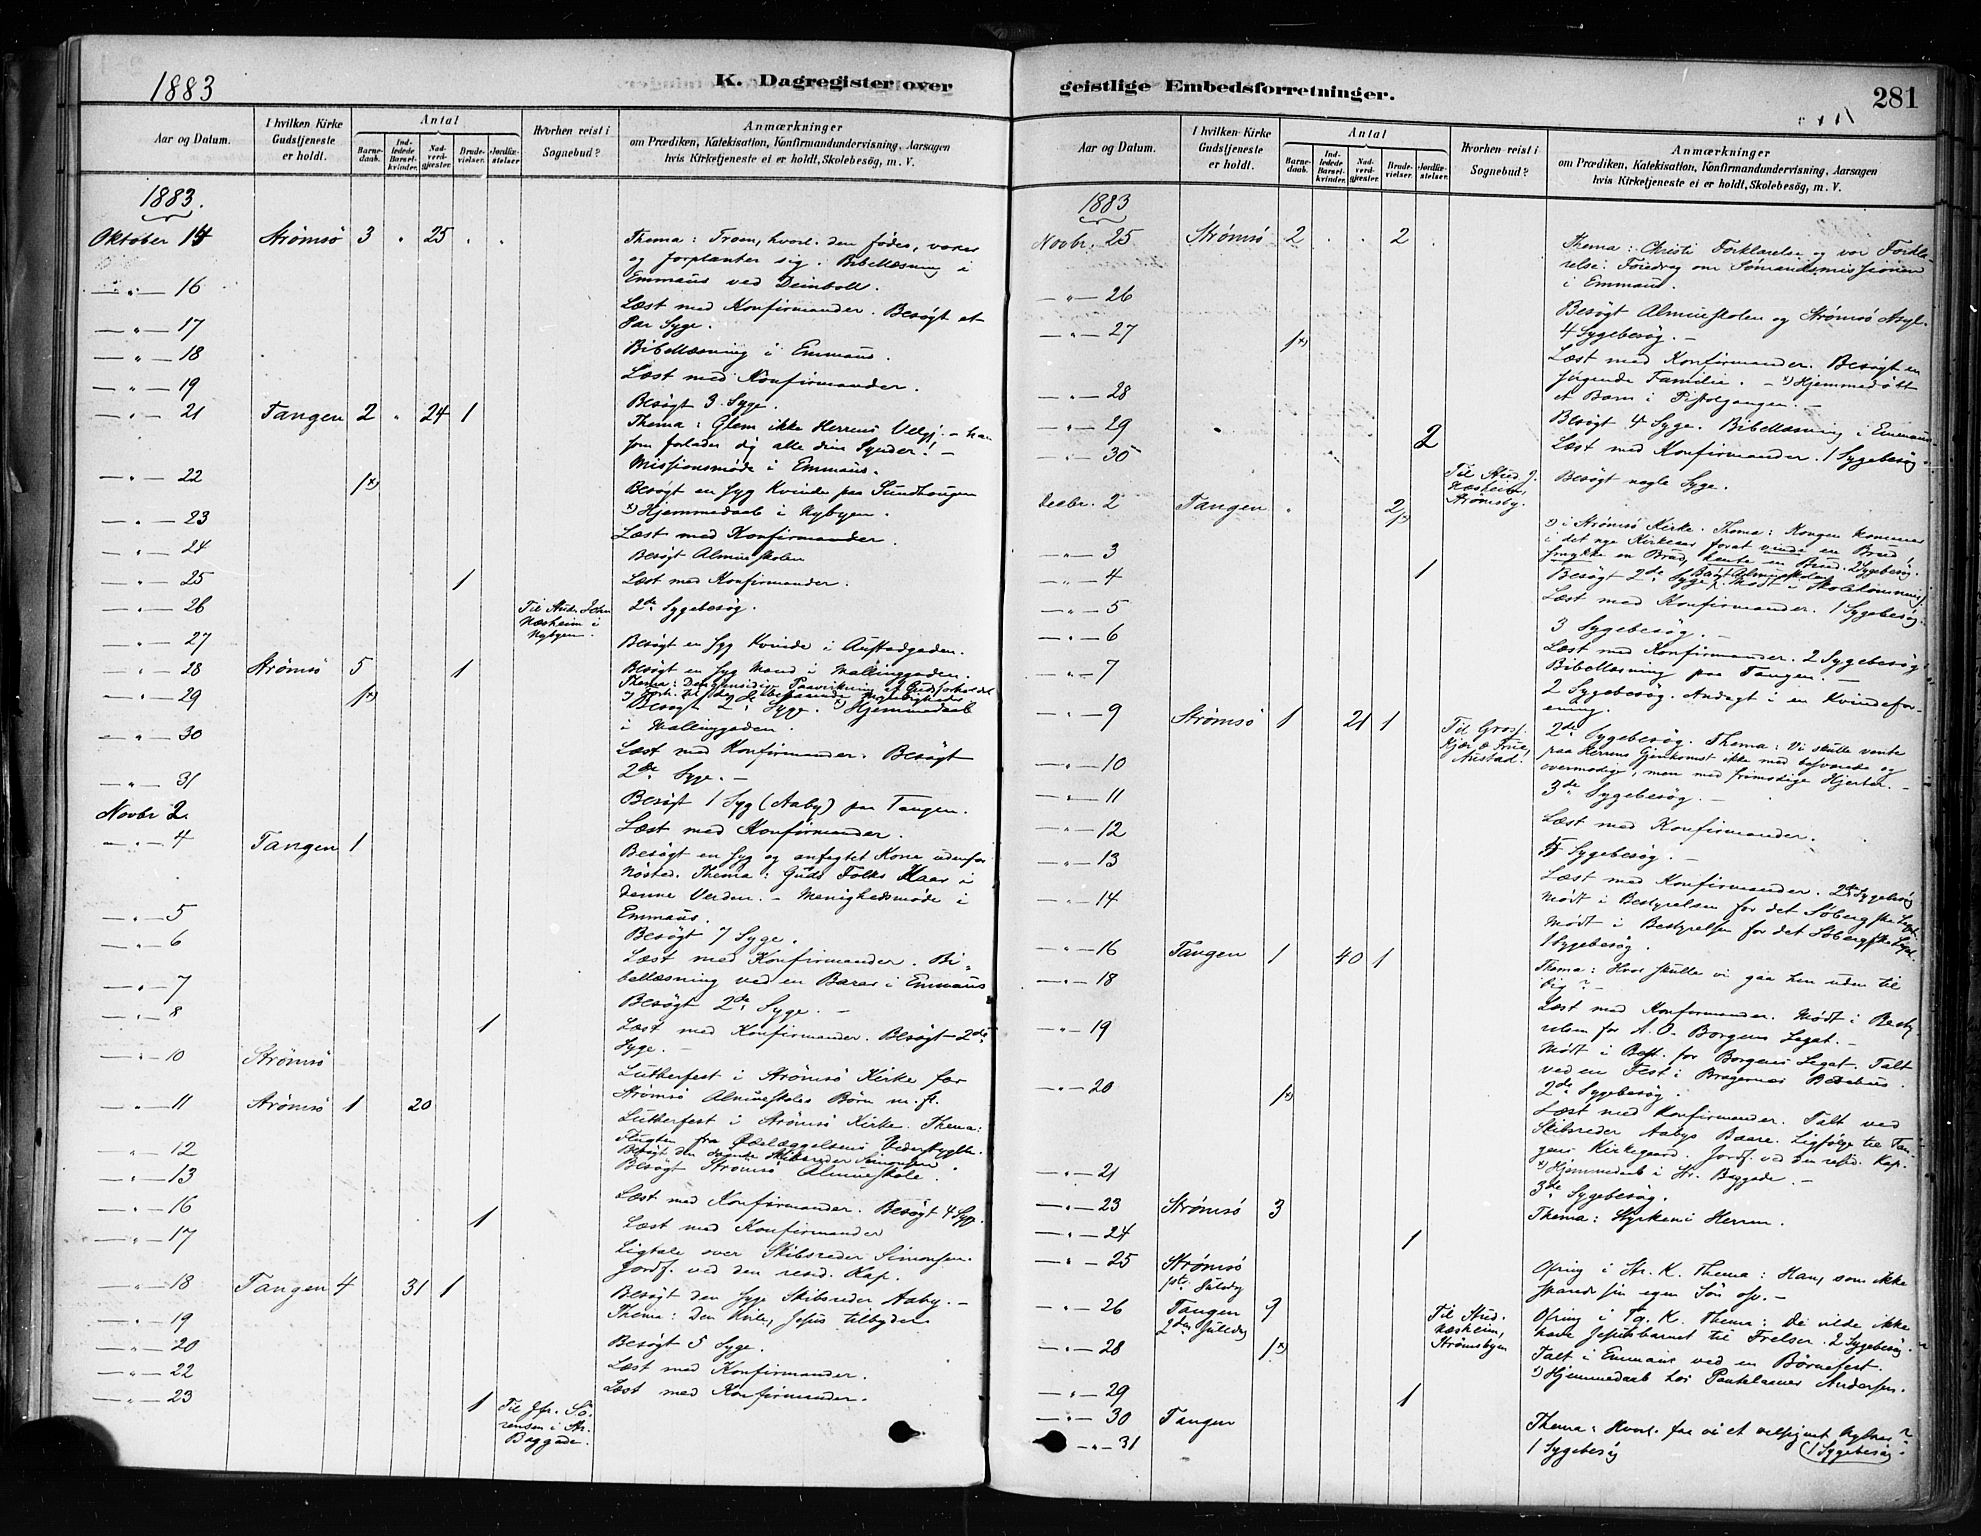 1883
K. Dagregister over
Aar og Datum.
I hvilken Kirke Gudstjeneste er holdt.
Antal
Barnedaab.
Indledede Barselkvinder.
Nadverdgjester.
Brudevielser.
Jordfæstelser
Hvorhen reist i Sognebud?
Anmærkninger
om Prædiken, Katekisation, Konfirmandundervisning, Aarsagen
hvis Kirketjeneste ei er holdt, Skolebesøg, m. V.
1883.
Oktober 14 Strømsø 3 " 25 " "
Thema: Troen, hvorl. den fødes, voxer
og forplanter sig. Bibellæsning i
Emmaus ved Deinboll.
— " — 16
Læst med Konfirmander. Besøgt et
Par Syge.
— " — 17
Bibellæsning i Emmaus.
— " — 18
Læst med Konfirmander.
— " — 19
Besøgt 3 Syge.
— " — 21 Tangen 2 " 24 1
Thema: Glem ikke Herrens Velgj. – han
som forlader dig alle dine Synder. –
Missionsmøde i Emmaus.
— " — 22 1 x)
Besøgt en syg Kvinde paa Sundhaugen
x) Hjemmedaab i Nybyen.
— " — 23
Læst med Konfirmander.
— " — 24
Besøgt Almueskolen
— " — 25 1
Læst med Konfirmander.
— " — 26 Til Stud. John
Næsheim i
Nybyen.
2de Sygebesøg.
— " — 27
Besøgt en syg Kvinde i Austadgaden.
— " — 28 Strømsø 5 1
Besøgt en syg Mand i Mallinggaden.
Thema: Den gjensidige Paavirkning af Gudsforholdet
— " — 29 1 x)
Besøgt 2de Syge. x) Hjemmedaab
i Mallinggaden.
— " — 30
Læst med Konfirmander. Besøgt
2de Syge. –
— " — 31
Besøgt 1 Syg (Aaby) paa Tangen.
Novbr 2.
Læst med Konfirmander.
— " — 4 Tangen 1
Besøgt en syg og anfegtet Kone udenfor
Nøsted. Thema: Guds Folks Kaar i
denne Verden. – Menighedsmøde i
Emmaus.
— " — 5
Besøgt 7 Syge.
— " — 6
Læst med Konfirmander. Bi-
bellæsning ved en Baare i Emmaus
— " — 7
Besøgt 2de Syge. –
— " — 8 1
Læst med Konfirmander. Besøgt 2de
Syge. –
— " — 10 Strømsø
Lutherfest i Strømsø Kirke for
Strømsø Almueskoles Børn m. fl.
— " — 11 Strømsø 1 20
Lutherfest i Strømsø Kirke. Thema:
Flugten fra Ødelæggelsens Vederstyggel.
— " — 12
Besøgt den syge Skibsreder Simonsen.
— " — 13
Besøgt Strømsø Almueskole.
— " — 16
Læst med Konfirmander. Besøgt 4 Syge.
— " — 17 1
Læst med Konfirmander
Ligtale over Skibsreder Simonsen.
Jordf. ved den resid. Kap.
— " — 18 Tangen 4 31 1
Besøgt den syge Skibsreder Aaby. –
— " — 19
Thema: Den Hvile, Jesus tilbyder
— " — 20
Besøgt 5 Syge.
— " — 22
Læst med Konfirmander.
— " — 23 1 Til Jfr. Sø-
rensen i Str.
Baggade.
Læst med Konfirmander.
geistlige Embedsforretninger.
281
Aar og Datum.
I hvilken Kirke Gudstjeneste er holdt.
Antal
Barnedaab.
Indledede Barselkvinder.
Nadverdgjester.
Brudevielser.
Jordfæstelser
Hvorhen reist i Sognebud?
Anmærkninger
om Prædiken, Katekisation, Konfirmandundervisning, Aarsagen
hvis Kirketjeneste ei er holdt, Skolebesøg, m. V.
1883
Novbr. 25 Strømsø 2 " " 2 "
Thema: Christi Forklarelse og vor Forkla-
relse. Foredrag om Sømandsmissionen
i Emmaus.
— " — 26
Besøgt Almueskolen og Strømsø Asyl.
4 Sygebesøg. –
— " — 27 1 x)
Læst med Konfirmander. Besøgt en
sørgende Familie. – x) Hjemmedøbt
et Barn i Pistolgangen. –
— " — 28
Besøgt 4 Syge. Bibellæsning i Emmaus.
— " — 29 2
Læst med Konfirmander. 1 Sygebesøg
— " — 30 Til Stud. J.
Næsheim,
Strømsby.
Besøgt nogle Syge.
Decbr. 2 Tangen " 2
1 x)
x) i Strømsø Kirke. Thema: Kongen kommer
i det nye Kirkeaar forat vinde en Brud,
smykke en Brud, hente en Brud. 2 Sygebesøg.
— " — 3
Besøgt Almueskolen
— " — 4 1
Besøgt 2de Syge. Mødt i Skolekommiss.
— " — 5
Læst med Konfirmander. 1 Sygebesøg.
— " — 6
3 Sygebesøg. –
— " — 7
Læst med Konfirmander. 2 Sygebesøg
Bibellæsning paa Tangen. –
2 Sygebesøg. Andagt i en Kvindefor-
ening.
— " — 9 Strømsø 1 21 1 Til Gross.
Kjær & Frue,
Austad.
2de Sygebesøg. Thema: Vi skulle vente
paa Herrens Gjenkomst ikke med besværede og
overmodige, men med frimodige Hjerter. –
— " — 10
3de Sygebesøg. –
— " — 11
Læst med Konfirmander.
— " — 12
5 Sygebesøg. –
— " — 13
Læst med Konfirmander. 2de Sygebesøg
Mødt i Bestyrelsen for det Søbergske Legat
— " — 14
Mødt i Bestyrelsen for det Søbergske Legat.
1 Sygebesøg.
— " — 16 Tangen 1 40 1
Thema: Hvor skulle vi gaa hen uden til
Dig? –
— " — 18
Læst med Konfirmander. Mødt i Besty-
relsen for A. O. Borgens Legat. –
— " — 19
Mødt i Best. for Borgens Legat. Talt
ved en Fest i Bragernes Bedehus.
2de Sygebesøg.
— " — 20 1 x)
Læst med Konfirmander. Talt ved
Skibsreder Aabys Baare. Ligfølge til Tan-
gens Kirkegaard. Jordf. ved den resid. Kap.
x) Hjemmedaab i Str. Baggade. –
— " — 21
3de Sygebesøg.
— " — 23 Strømsø 3
Thema: Styrken i Herren.
— " — 24 1
— " — 25 Strømsø
1ste Juledag
Ofring i Str. K. Thema: Han, som ikke
sparede sin egen Søn osv. –
— " — 26 Tangen 9
2den Juledag
Til Stud.
Næsheim,
Strømsbyen
Ofring i Tg. K. Thema: De vilde ikke
have Jesusbarnet til Frelser. 2 Sygebesøg.
— " — 28 1 x)
Talt i Emmaus ved en Børnefest.
x) Hjemmedaab hos Andersen.
— " — 29 1
— " — 30 Tangen
Thema: Hvorl. faa vi et velsignet Nytaar?
— " — 31
1 Sygebesøg (1 Sygebesøg